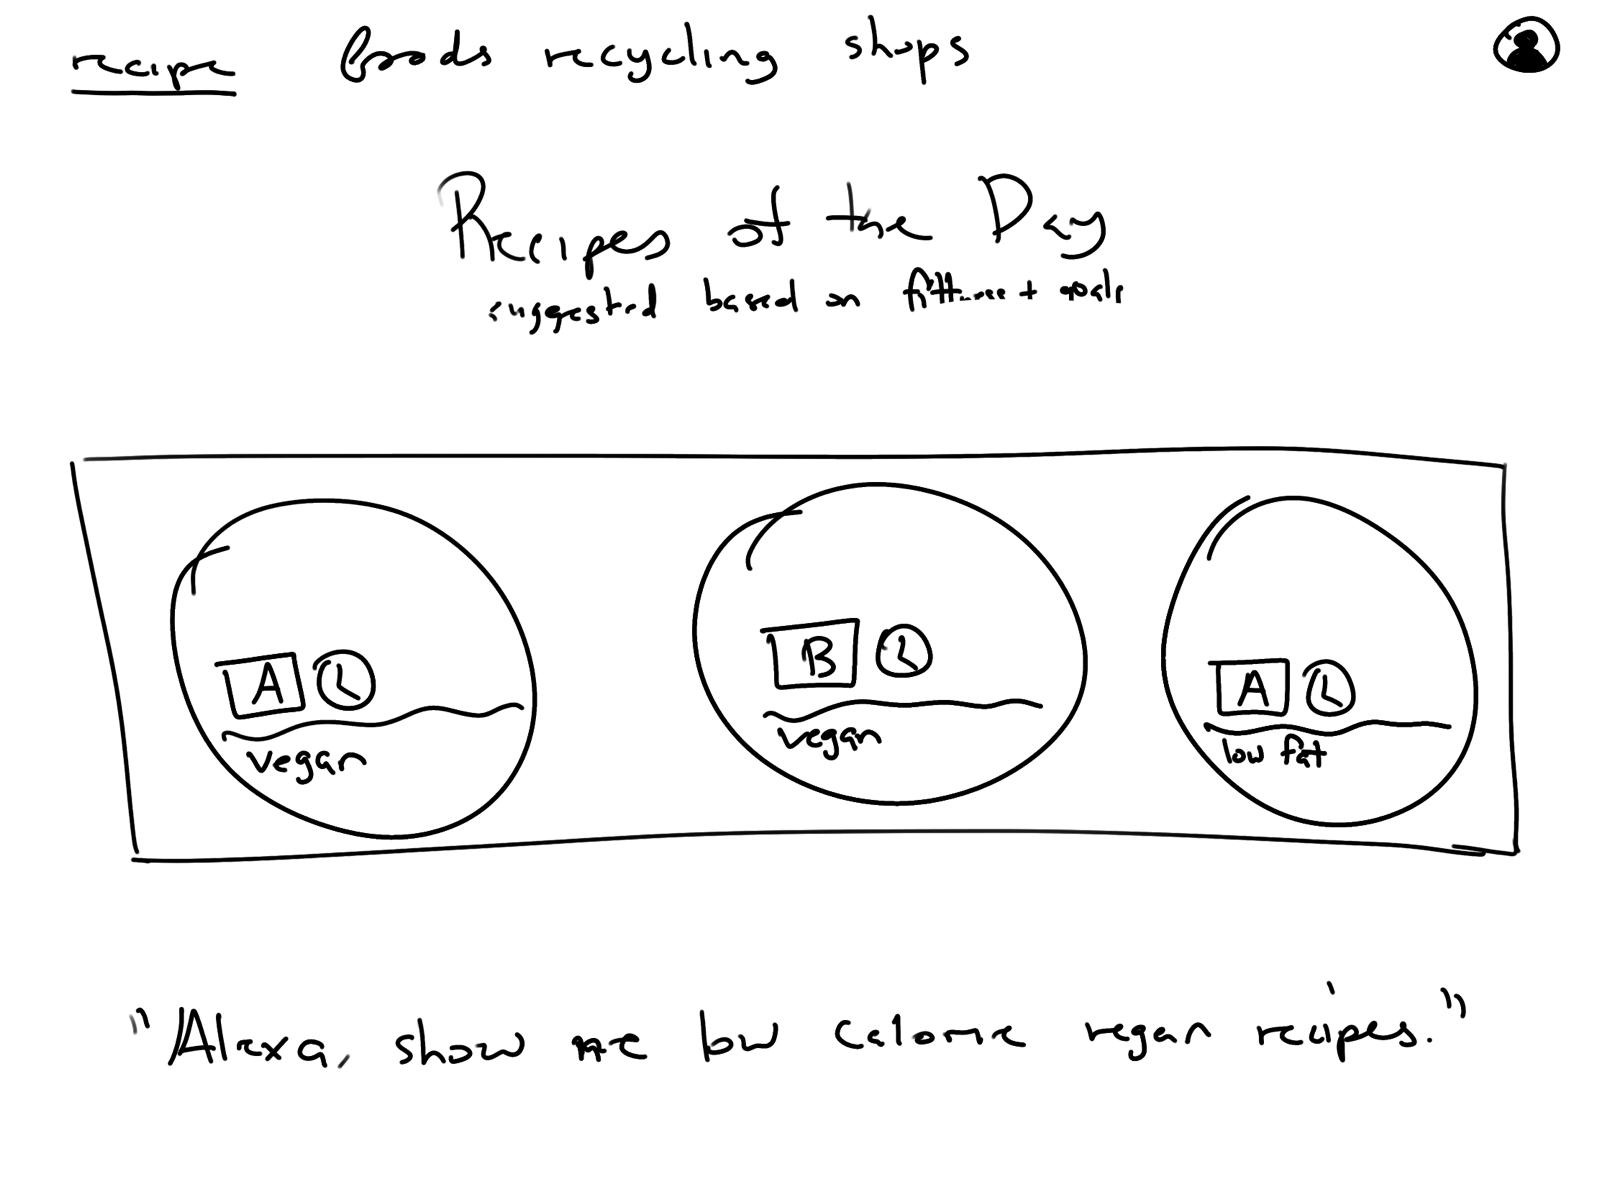 recipe foods recycling shops
Recipes of the Day
suggested based on + goals
A
B
A
vegan
vegan
low fat
"Alexa, show me low calorie vegan recipes."